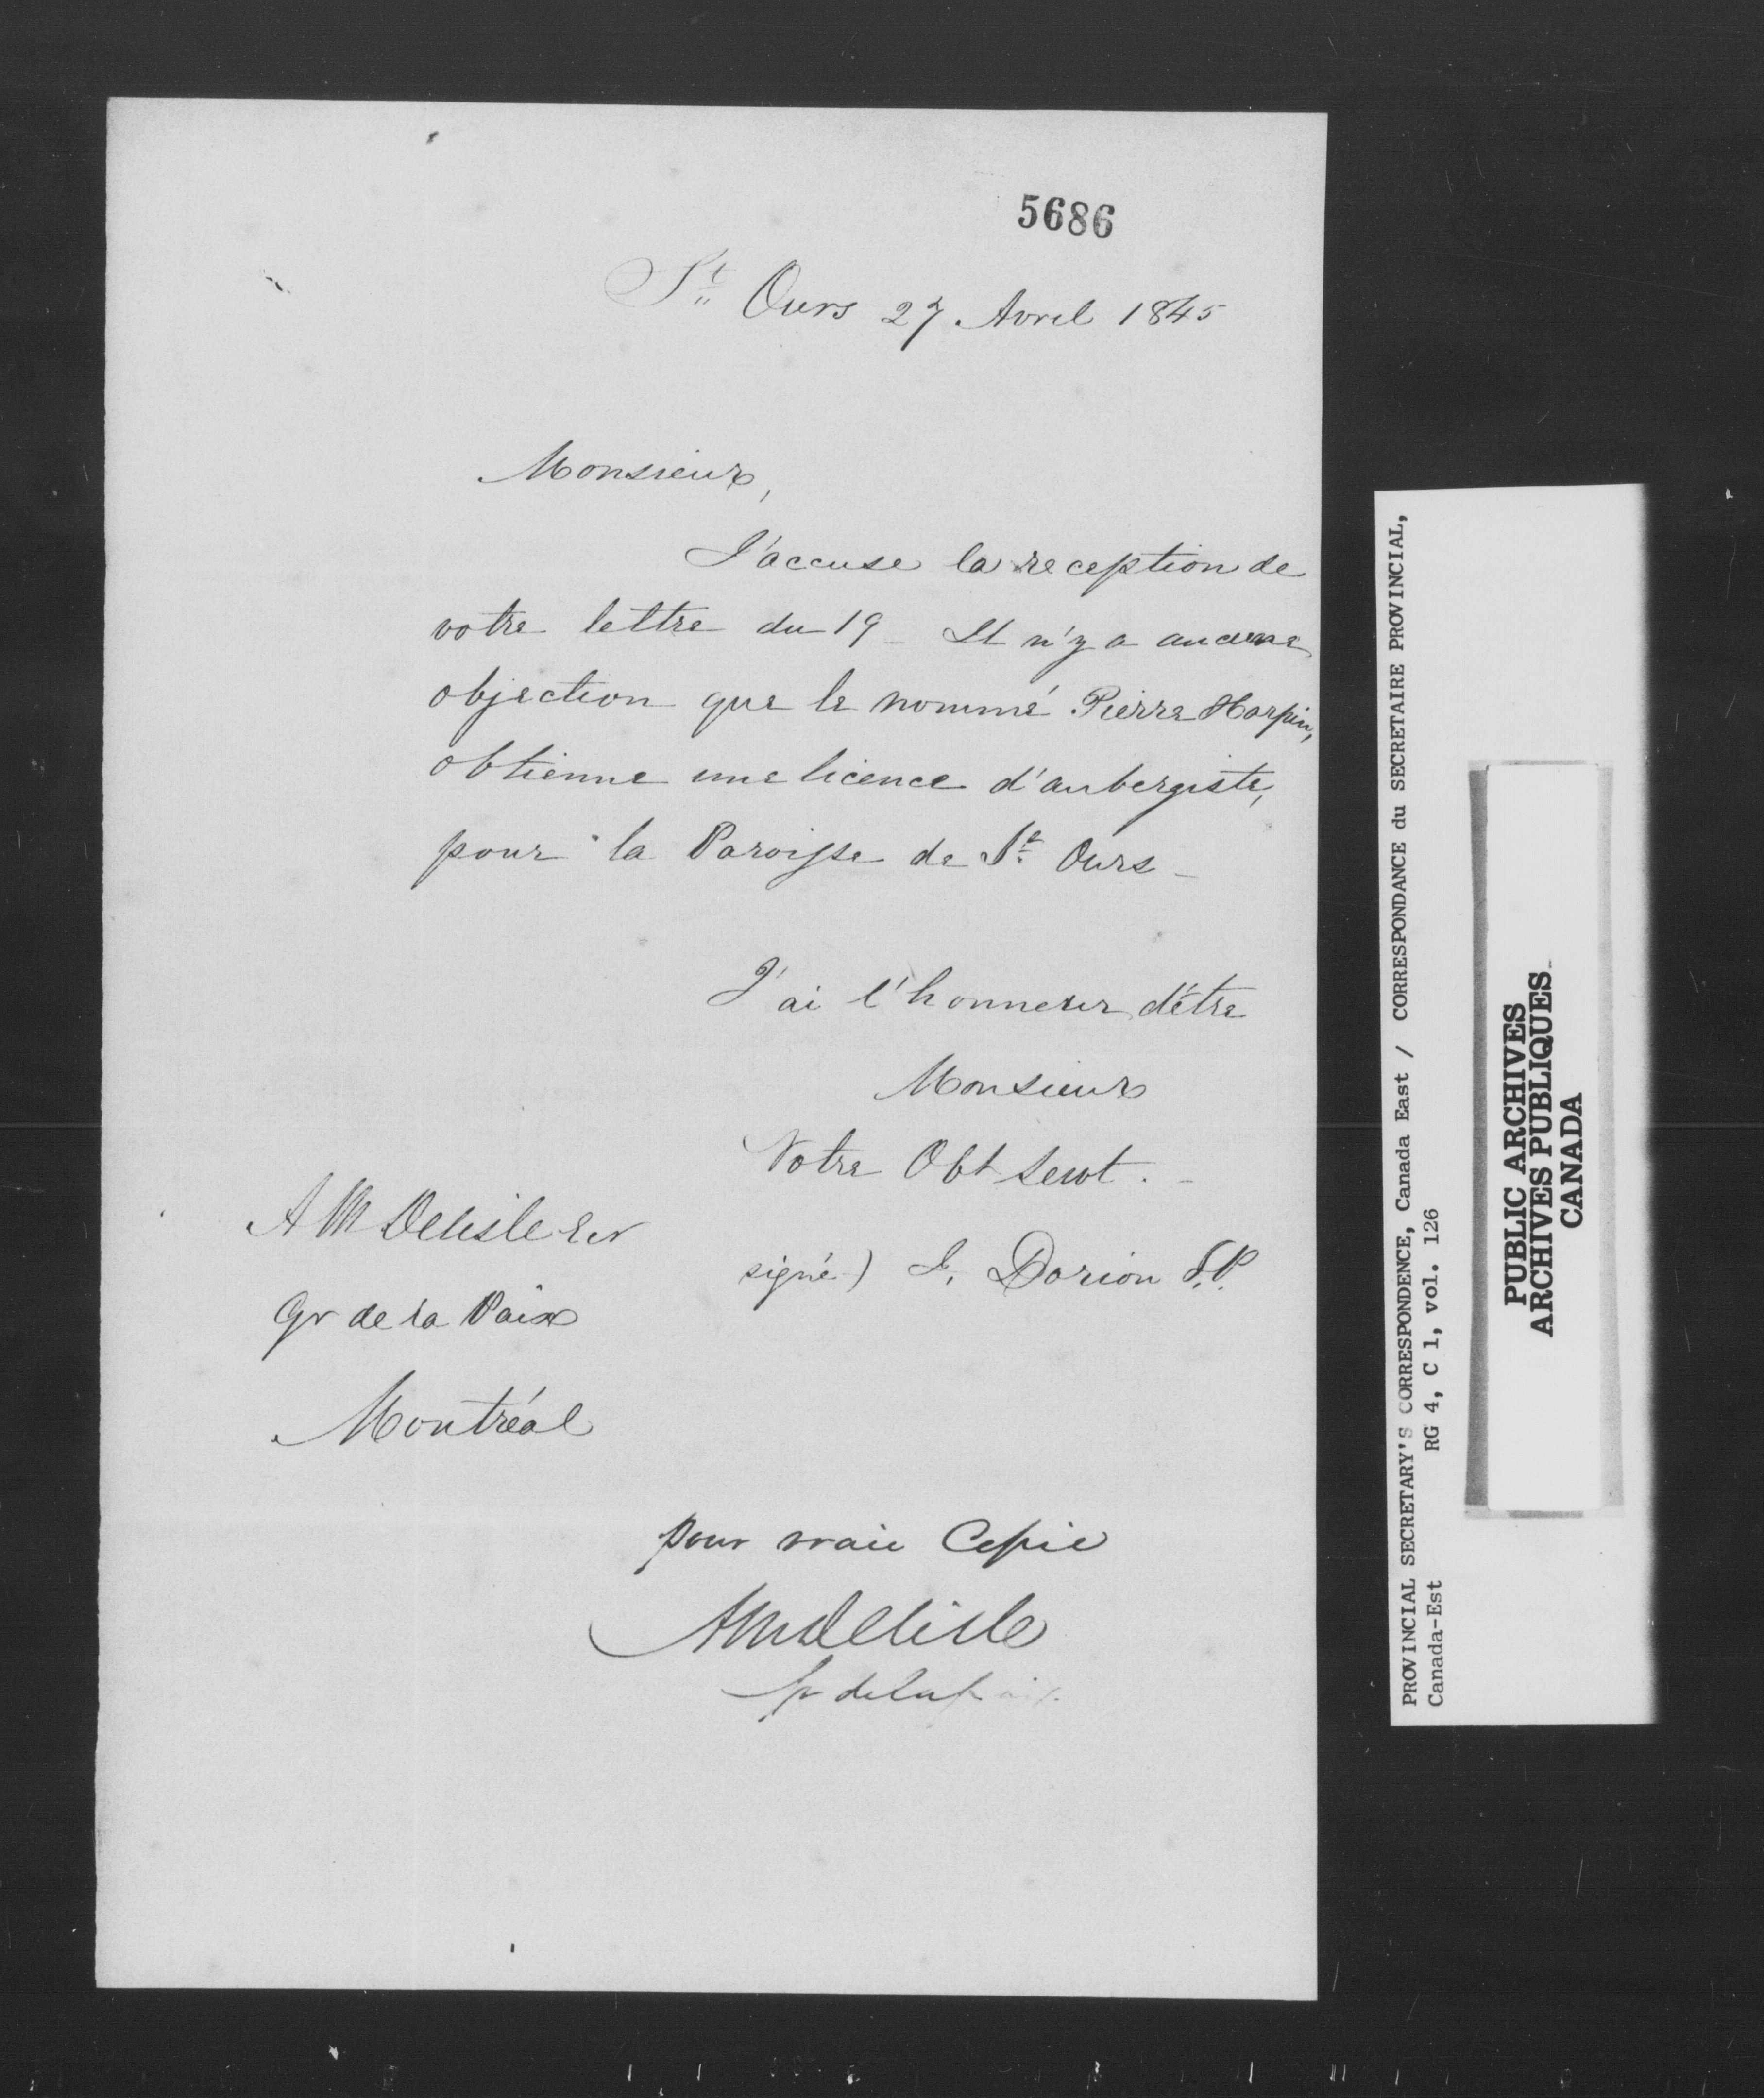 5686
St Ours 27 Avril 1845
Monsieur,
J'accuse la reception de
votre lettre du 19 _ Il n'y a aucune
objection que le nommé Pierre Harpin,
obtienne une licence d'aubergiste,
pour la Paroisse de St Ours _
J'ai l'honneur d'être
Monsieur
Votre Obt Servt. _
signé) L. Dorion J.P.
A M Delisle Ecr
Gr de la Paix
Montréal
pour vraie Copie
AM Delisle
Gr de la paix
PROVINCIAL SECRETARY'S CORRESPONDENCE, Canada East / CORRESPONDANCE du SECRETAIRE PROVINCIAL,
Canada-Est RG 4, C 1, vol. 126
PUBLIC ARCHIVES
ARCHIVES PUBLIQUES
CANADA